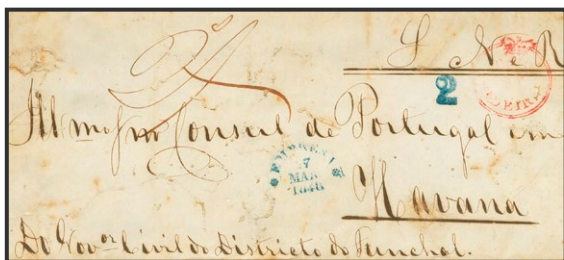 S N e R
2
Ill mo Snr Consul de Portugal em
EMPRESA
7
MAR
1848
Havana
Do Govor Civil do Districto do Funchal.